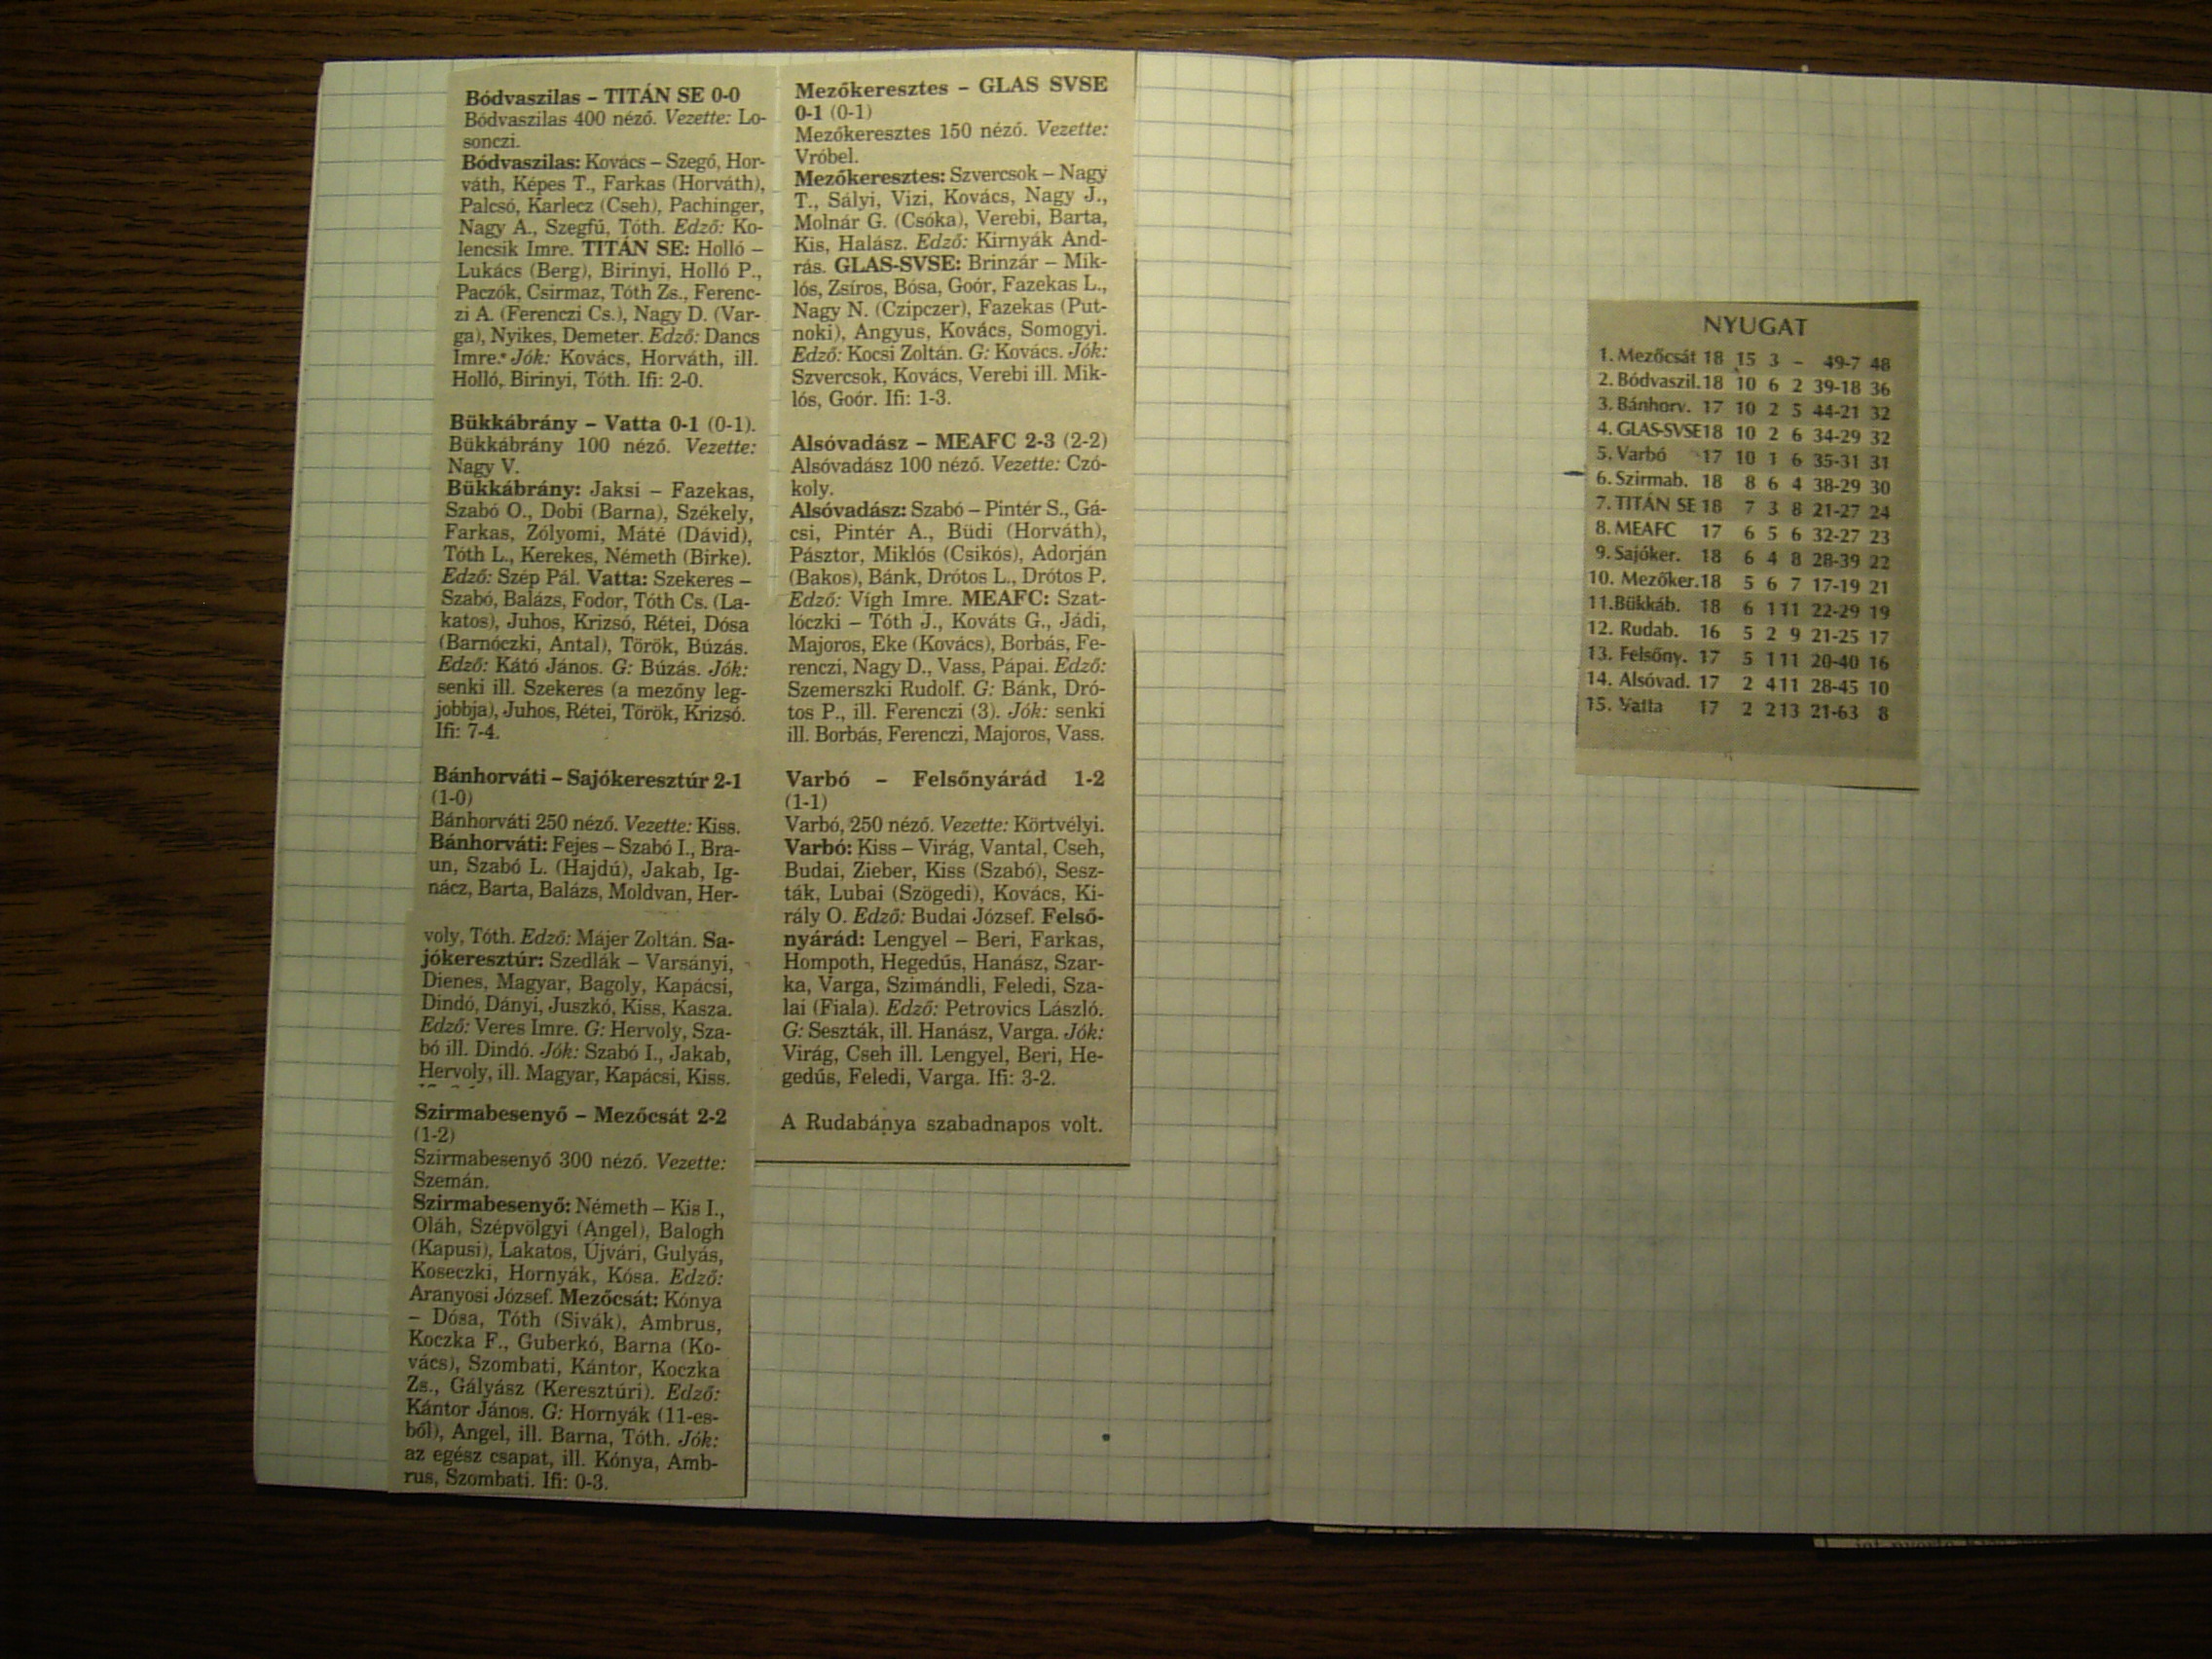 Bódvaszilas – TITÁN SE 0-0
Bódvaszilas 400 néző. Vezette: Lo-
sonczi.
Bódvaszilas: Kovács – Szegő, Hor-
váth, Képes T., Farkas (Horváth),
Palcsó, Karlecz (Cseh), Pachinger,
Nagy A., Szegfű, Tóth. Edző: Ko-
lencsik Imre. TITÁN SE: Holló –
Lukács (Berg), Birinyi, Holló P.,
Paczók, Csirmaz, Tóth Zs., Ferenc-
zi A. (Ferenczi Cs.), Nagy D. (Var-
ga), Nyikes, Demeter. Edző: Dancs
Imre. Jók: Kovács, Horváth, ill.
Holló, Birinyi, Tóth. Ifi: 2-0.
Bükkábrány – Vatta 0-1 (0-1).
Bükkábrány 100 néző. Vezette:
Nagy V.
Bükkábrány: Jaksi – Fazekas,
Szabó O., Dobi (Barna), Székely,
Farkas, Zólyomi, Máté (Dávid),
Tóth L., Kerekes, Németh (Birke).
Edző: Szép Pál. Vatta: Szekeres –
Szabó, Balázs, Fodor, Tóth Cs. (La-
katos), Juhos, Krizsó, Rétei, Dósa
(Barnóczki, Antal), Török, Búzás.
Edző: Kátó János. G: Búzás. Jók:
senki ill. Szekeres (a mezőny leg-
jobbja), Juhos, Rétei, Török, Krizsó.
Ifi: 7-4.
Bánhorváti – Sajókeresztúr 2-1
(1-0)
Bánhorváti 250 néző. Vezette: Kiss.
Bánhorváti: Fejes – Szabó I., Bra-
un, Szabó L. (Hajdú), Jakab, Ig-
nácz, Barta, Balázs, Moldvan, Her-
voly, Tóth. Edző: Májer Zoltán. Sa-
jókeresztúr: Szedlák – Varsányi,
Dienes, Magyar, Bagoly, Kapácsi,
Dindó, Dányi, Juszkó, Kiss, Kasza.
Edző: Veres Imre. G: Hervoly, Sza-
bó ill. Dindó. Jók: Szabó I., Jakab,
Hervoly, ill. Magyar, Kapácsi, Kiss.
Szirmabesenyő – Mezőcsát 2-2
(1-2)
Szirmabesenyő 300 néző. Vezette:
Szemán.
Szirmabesenyő: Németh – Kis I.,
Oláh, Szépvölgyi (Angel), Balogh
(Kapusi), Lakatos, Újvári, Gulyás,
Koseczki, Hornyák, Kósa. Edző:
Aranyosi József. Mezőcsát: Kónya
– Dósa, Tóth (Sivák), Ambrus,
Koczka F., Guberkó, Barna (Ko-
vács), Szombati, Kántor, Koczka
Zs., Gályász (Keresztúri). Edző:
Kántor János. G: Hornyák (11-es-
ből), Angel, ill. Barna, Tóth. Jók:
az egész csapat, ill. Kónya, Amb-
rus, Szombati. Ifi: 0-3.
Mezőkeresztes – GLAS SVSE
0-1 (0-1)
Mezőkeresztes 150 néző. Vezette:
Vróbel.
Mezőkeresztes: Szvercsok – Nagy
T., Sályi, Vizi, Kovács, Nagy J.,
Molnár G. (Csóka), Verebi, Barta,
Kis, Halász. Edző: Kirnyák And-
rás. GLAS-SVSE: Brinzár – Mik-
lós, Zsíros, Bósa, Goór, Fazekas L.,
Nagy N. (Czipczer), Fazekas (Put-
noki), Angyus, Kovács, Somogyi.
Edző: Kocsi Zoltán. G: Kovács. Jók:
Szvercsok, Kovács, Verebi ill. Mik-
lós, Goór. Ifi: 1-3.
Alsóvadász – MEAFC 2-3 (2-2)
Alsóvadász 100 néző. Vezette: Czó-
koly.
Alsóvadász: Szabó – Pintér S., Gá-
csi, Pintér A., Büdi (Horváth),
Pásztor, Miklós (Csikós), Adorján
(Bakos), Bánk, Drótos L., Drótos P.
Edző: Vígh Imre. MEAFC: Szat-
lóczki – Tóth J., Kováts G., Jádi,
Majoros, Eke (Kovács), Borbás, Fe-
renczi, Nagy D., Vass, Pápai. Edző:
Szemerszki Rudolf. G: Bánk, Dró-
tos P., ill. Ferenczi (3). Jók: senki
ill. Borbás, Ferenczi, Majoros, Vass.
Varbó – Felsőnyárád 1-2
(1-1)
Varbó, 250 néző. Vezette: Körtvélyi.
Varbó: Kiss – Virág, Vantal, Cseh,
Budai, Zieber, Kiss (Szabó), Sesz-
ták, Lubai (Szögedi), Kovács, Ki-
rály O. Edző: Budai József. Felső-
nyárád: Lengyel – Beri, Farkas,
Hompoth, Hegedűs, Hanász, Szar-
ka, Varga, Szimándli, Feledi, Sza-
lai (Fiala). Edző: Petrovics László.
G: Seszták, ill. Hanász, Varga. Jók:
Virág, Cseh ill. Lengyel, Beri, He-
gedűs, Feledi, Varga. Ifi: 3-2.
A Rudabánya szabadnapos volt.
NYUGAT
1. Mezőcsát 18 15 3 – 49-7 48
2. Bódvaszil. 18 10 6 2 39-18 36
3. Bánhorv. 17 10 2 5 44-21 32
4. GLAS-SVSE 18 10 2 6 34-29 32
5. Varbó 17 10 1 6 35-31 31
6. Szirmab. 18 8 6 4 38-29 30
7. TITÁN SE 18 7 3 8 21-27 24
8. MEAFC 17 6 5 6 32-27 23
9. Sajóker. 18 6 4 8 28-39 22
10. Mezőker. 18 5 6 7 17-19 21
11. Bükkáb. 18 6 1 11 22-29 19
12. Rudab. 16 5 2 9 21-25 17
13. Felsőny. 17 5 1 11 20-40 16
14. Alsóvad. 17 2 4 11 28-45 10
15. Vatta 17 2 2 13 21-63 8